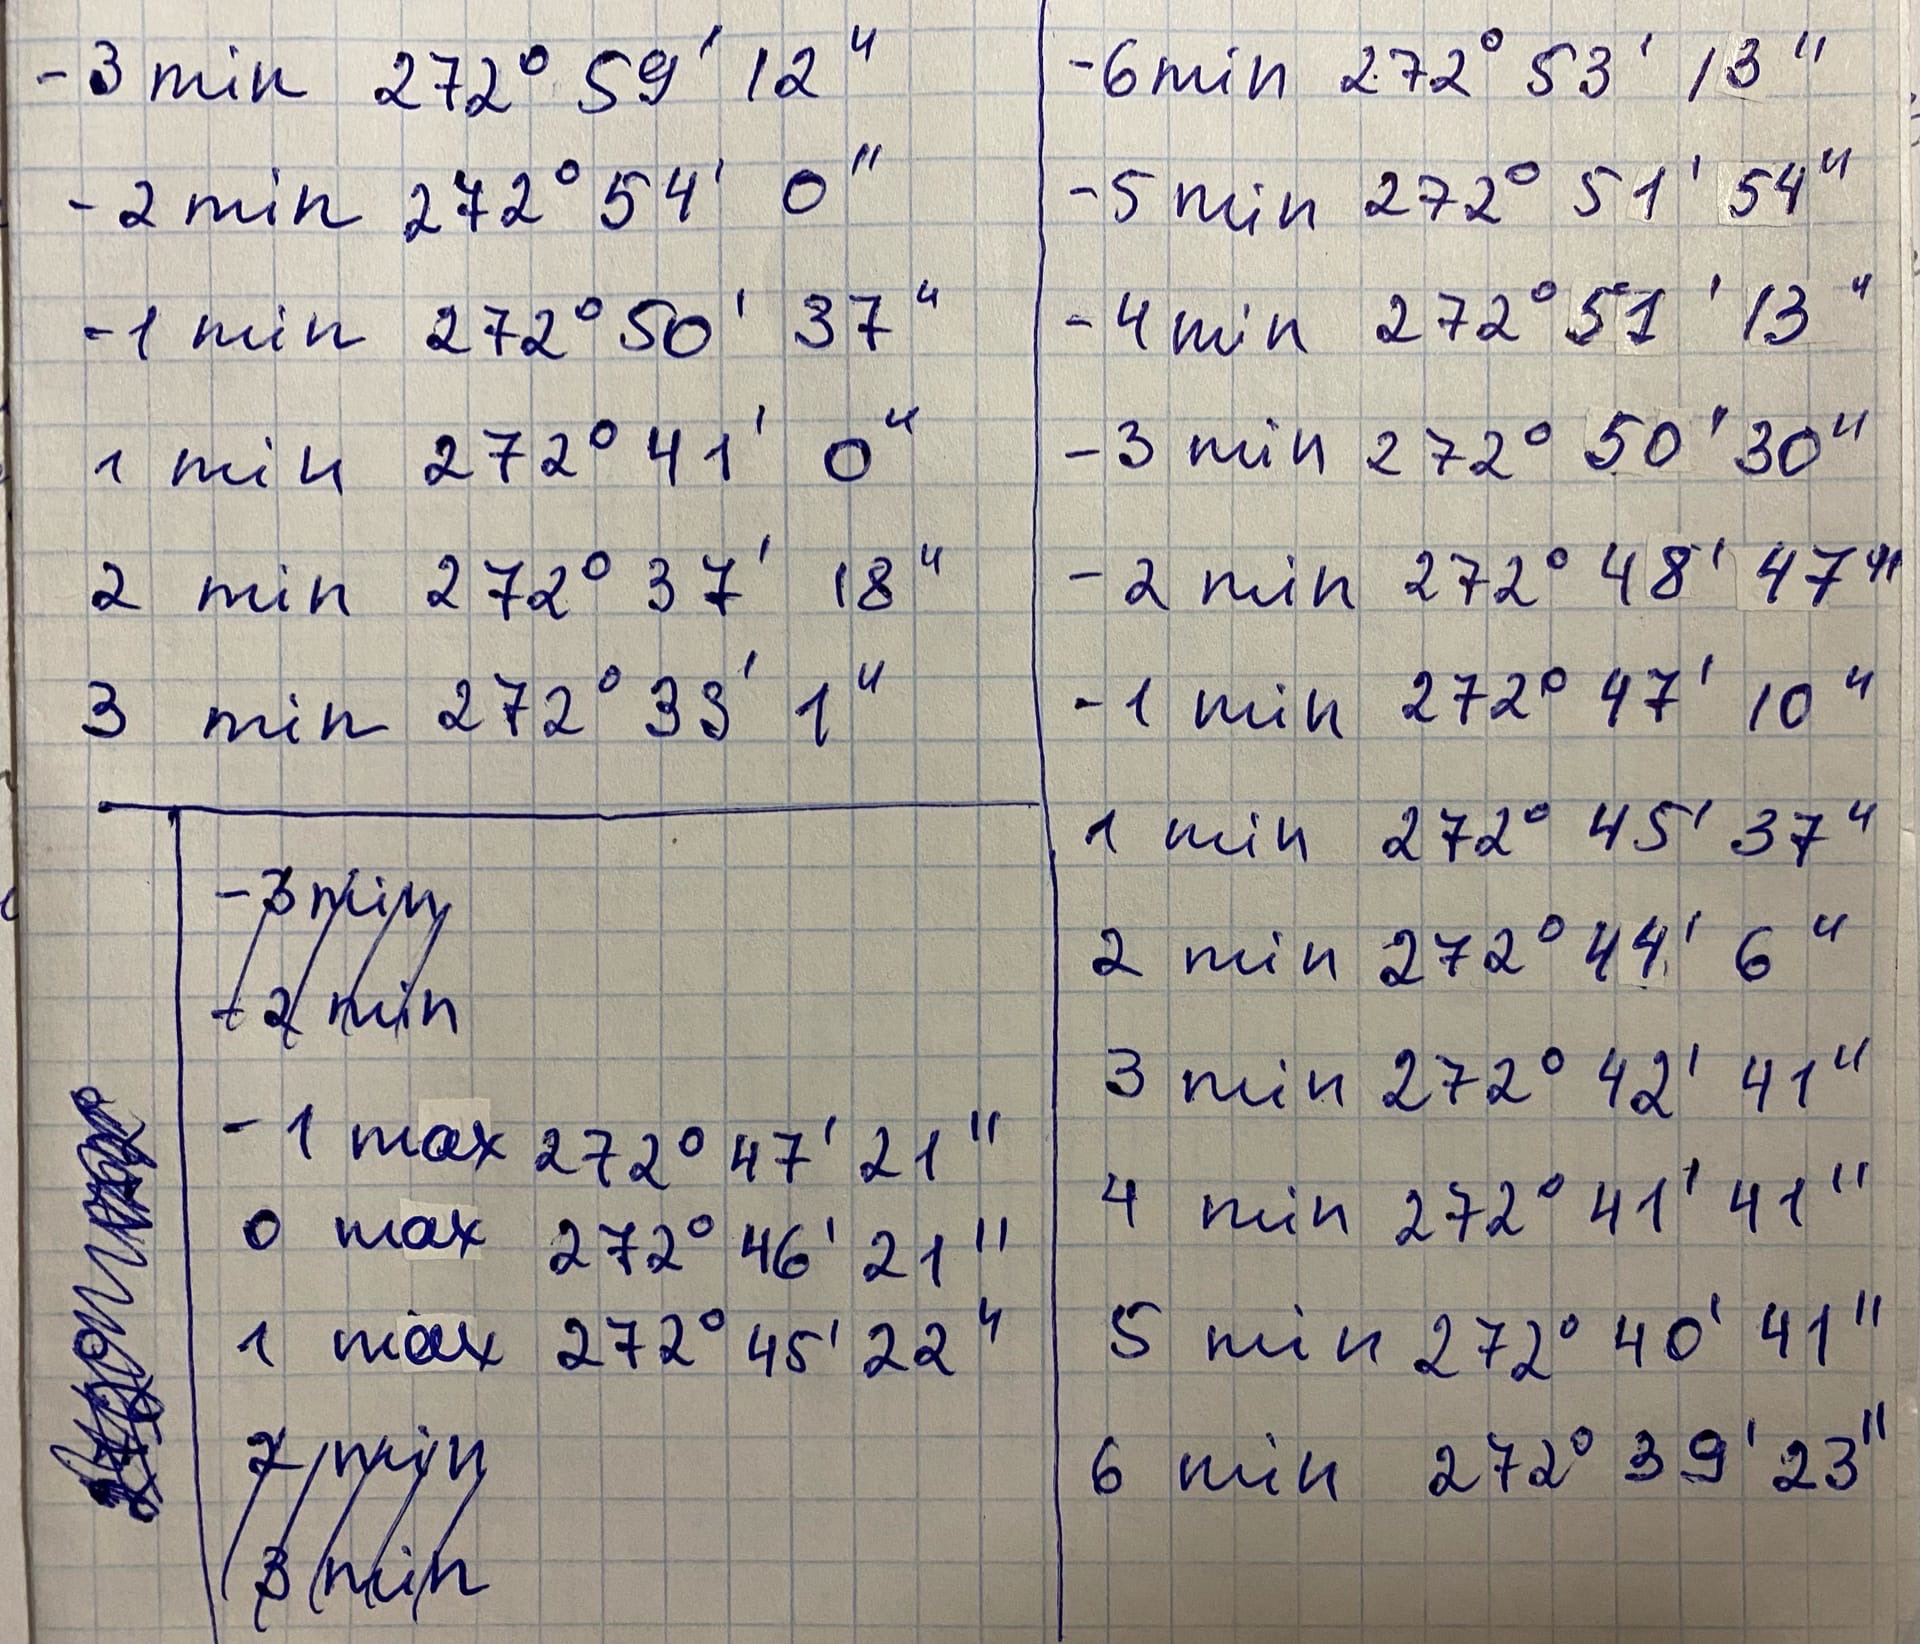 -3 min 272° 59' 12"
-2 min 272° 54' 0"
-1 min 272° 50' 37"
1 min 272° 41' 0"
2 min 272° 37' 18"
3 min 272° 33' 1"
-3 min
-2 min
-1 max 272° 47' 21"
0 max 272° 46' 21"
1 max 272° 45' 22"
2 min
3 min
-6 min 272° 53' 13"
-5 min 272° 51' 54"
-4 min 272° 51' 13"
-3 min 272° 50' 30"
-2 min 272° 48' 47"
-1 min 272° 47' 10"
1 min 272° 45' 37"
2 min 272° 44' 6"
3 min 272° 42' 41"
4 min 272° 41' 41"
5 min 272° 40' 41"
6 min 272° 39' 23"